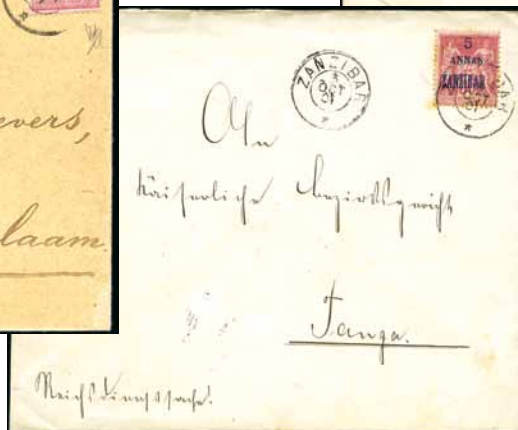 evers,
laam.
ZANZIBAR
OCT
5
ANNAS
ZANZIBAR
OCT
An
Kaiserliche Bezirksgericht
Tanga.
Reichsdienstsache!